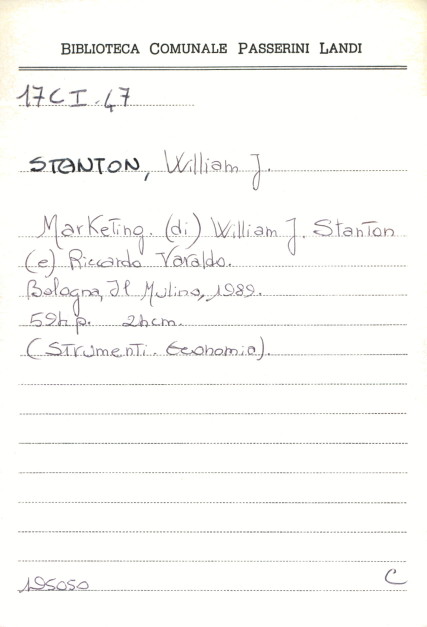 BIBLIOTECA COMUNALE PASSERINI LANDI
17CI.47
STANTON, William J.
Marketing. (di) William J. Stanton
(e) Riccardo Varaldo.
Bologna, Il Mulino, 1989.
594 p. 24cm.
(Strumenti. Economia).
195050 C